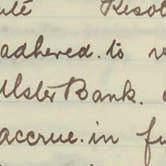 Resol
adhered to
Ulster Bank.
accrue in fu